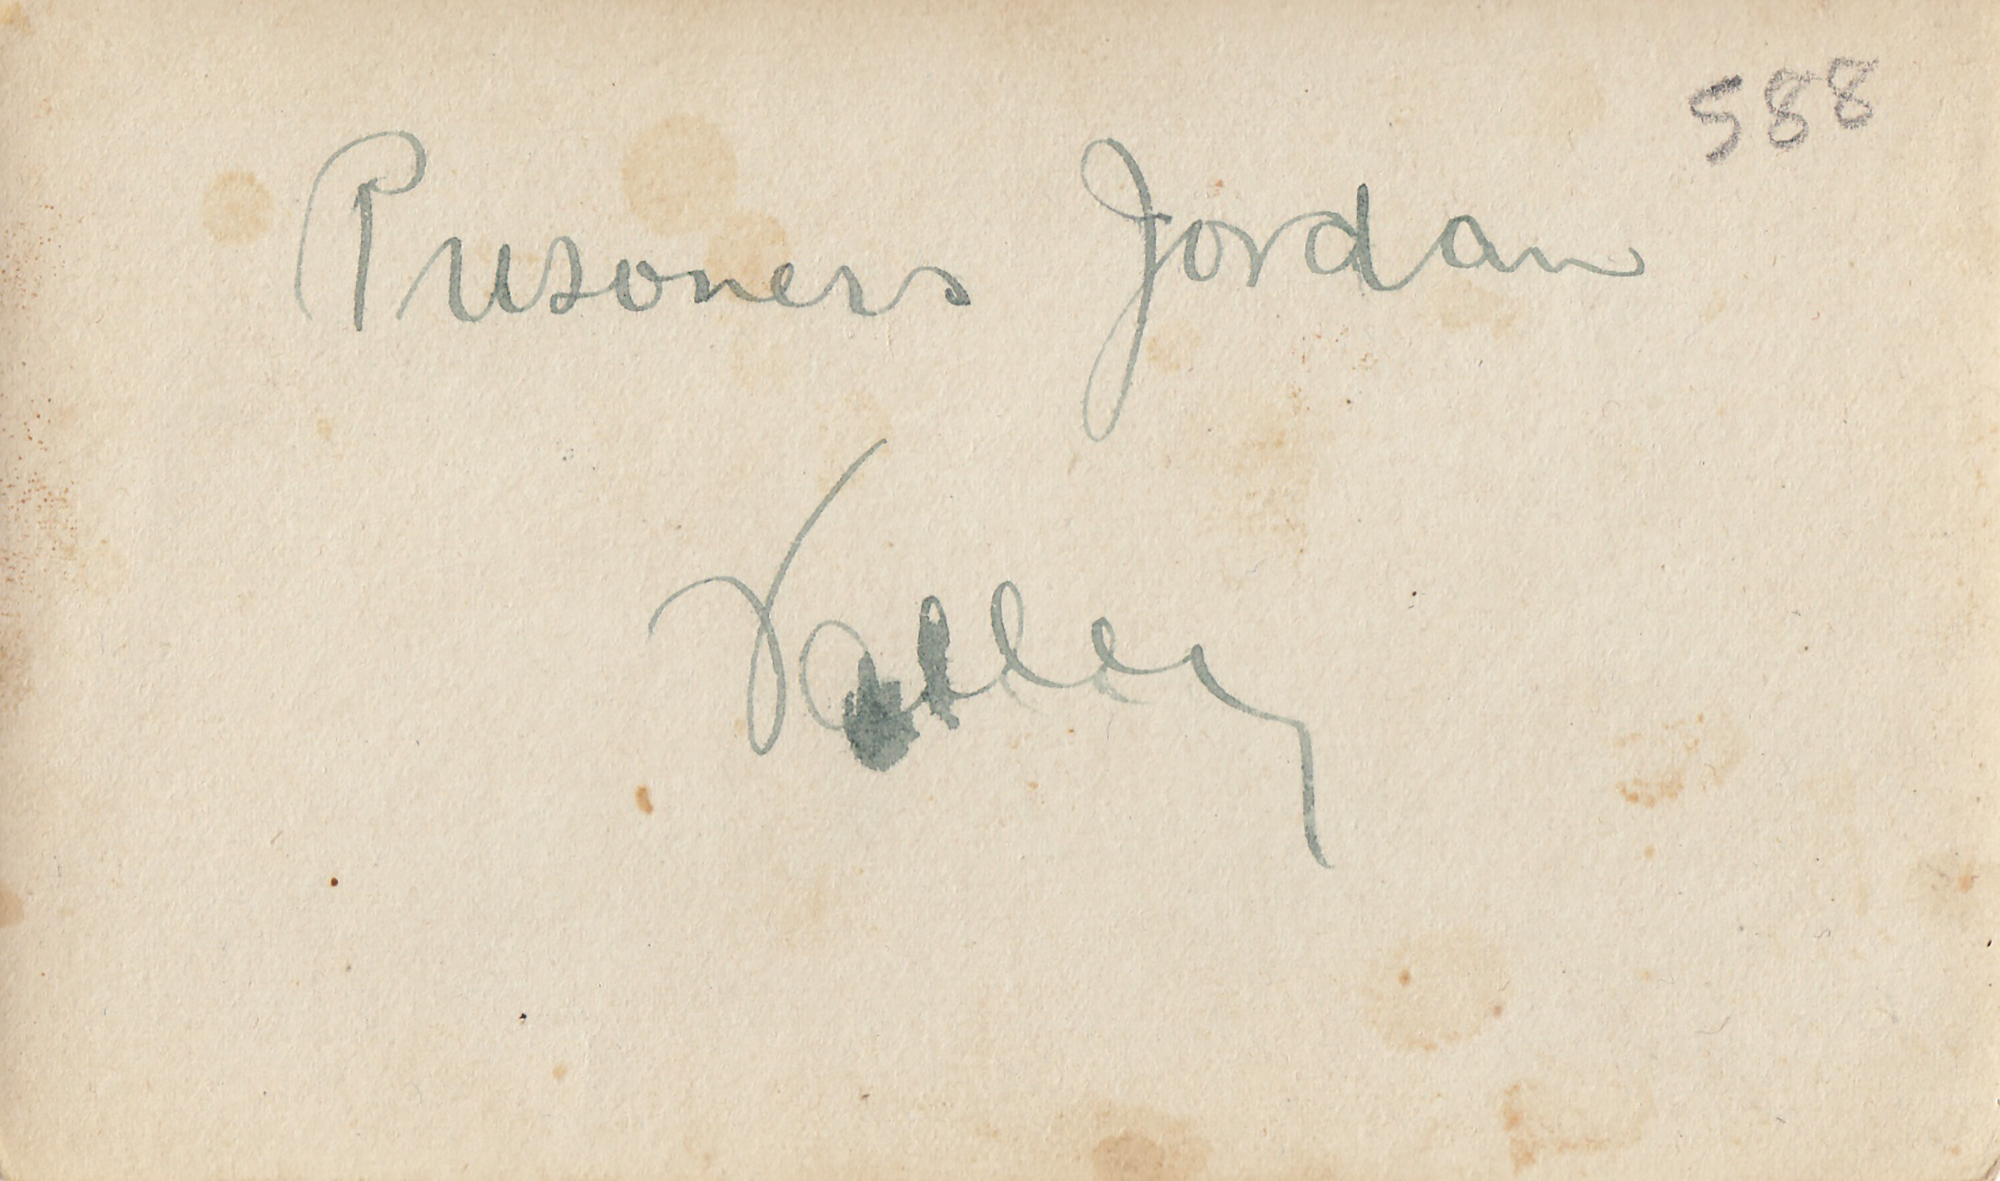 588
Prisoners Jordan
Valley